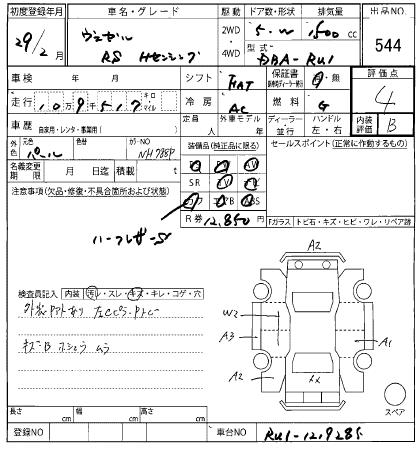 初度登録年月 車名・グレード 駆動 ドア数・形状 排気量 出品NO
29/2月 ヴェゼル 2WD 5・W 1,500 cc 544
RS Hセンシング 4WD 型式 DBA-RU1
車検 年 月 シフト FAT 保証書 有・無 評価点
走行 10万9千517 キロ マイル 冷房 AC 燃料 G 4
車歴 自家用・レンタ・事業用( ) 定員 人 外車モデル 年 ディーラー 並行 ハンドル 左・右 内装評価 B
外色 元色 パール 色替 カラーNO NH788P
装備品(純正品に限る) セールスポイント(正常に作動するもの)
名義変更期限 月 日迄 積載 t
SR
注意事項(欠品・修復・不具合箇所および状態)
R券 12,850円
ハーフレザーS
『ガラス トビ石・キズ・ヒビ・ワレ・リペア跡
検査員記入 内装 汚レ・スレ・キズ・キレ・コゲ・穴
A2
W2
A3
A1
A2
スペア
長さ cm 幅 cm 高さ cm
登録NO 車台NO RU1-121928